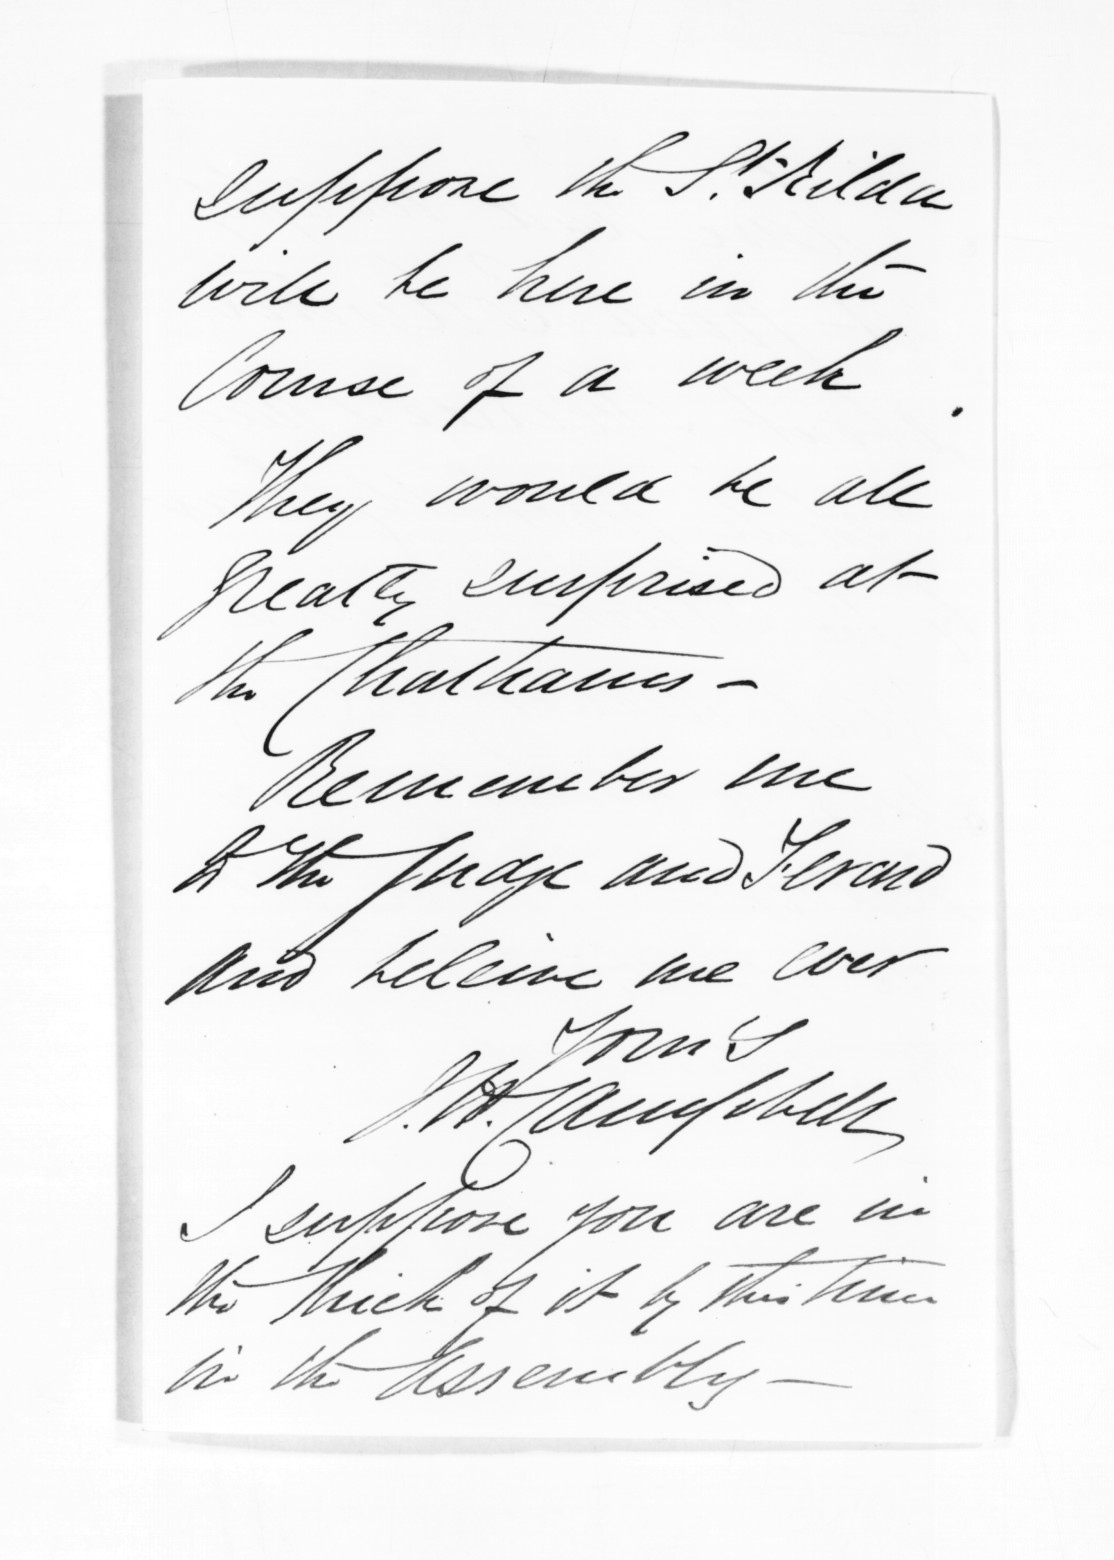 suppose the St. Kilda
will be here in the
Course of a week.
They would be all
greatly surprised at
the Chathams -
Remember me
to the Judge and
and beleive me ever
Yours
Campbell
I suppose you are in
the thick of it by this time
in the Assembly -